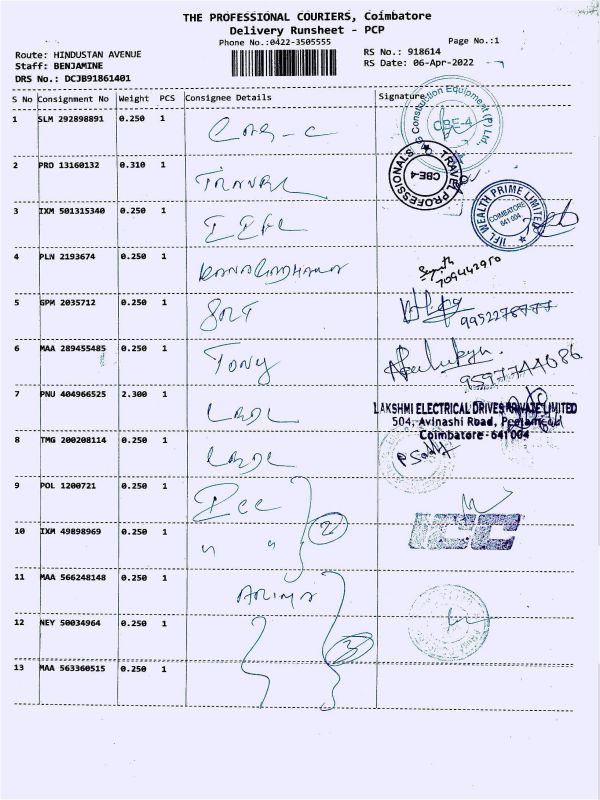 THE PROFESSIONAL COURIERS, Coimbatore
Delivery Runsheet - PCP
Phone No.:0422-3505555
Page No.:1
Route: HINDUSTAN AVENUE
RS No.: 918614
Staff: BENJAMINE
RS Date: 06-Apr-2022
DRS No.: DCJB91861401
S No Consignment No Weight PCS Consignee Details Signature
Construction Equipment (P) Ltd.,
CBE-4
1 SLM 292898891 0.250 1
TRAVEL PROFESSIONALS
CBE-4
2 PRO 13160132 0.310 1 TRAVEL
IIFL WEALTH PRIME LIMITED
COIMBATORE
641 004
3 IXM 501315340 0.250 1 IIFL
4 PLN 2193674 0.250 1
709442950
5 GPM 2035712 0.250 1
9952276777
6 MAA 289455485 0.250 1 Tony
9597744086
7 PNU 404966525 2.300 1
LAKSHMI ELECTRICAL DRIVES PRIVATE LIMITED
504, Avinashi Road, Peelamedu
Coimbatore - 641 004
8 TMG 200208114 0.250 1
9 POL 1200721 0.250 1 ICC
ICC
10 IXM 49898969 0.250 1 " " 2
11 MAA 566248148 0.250 1
12 NEY 50034964 0.250 1 3
13 MAA 563360515 0.250 1